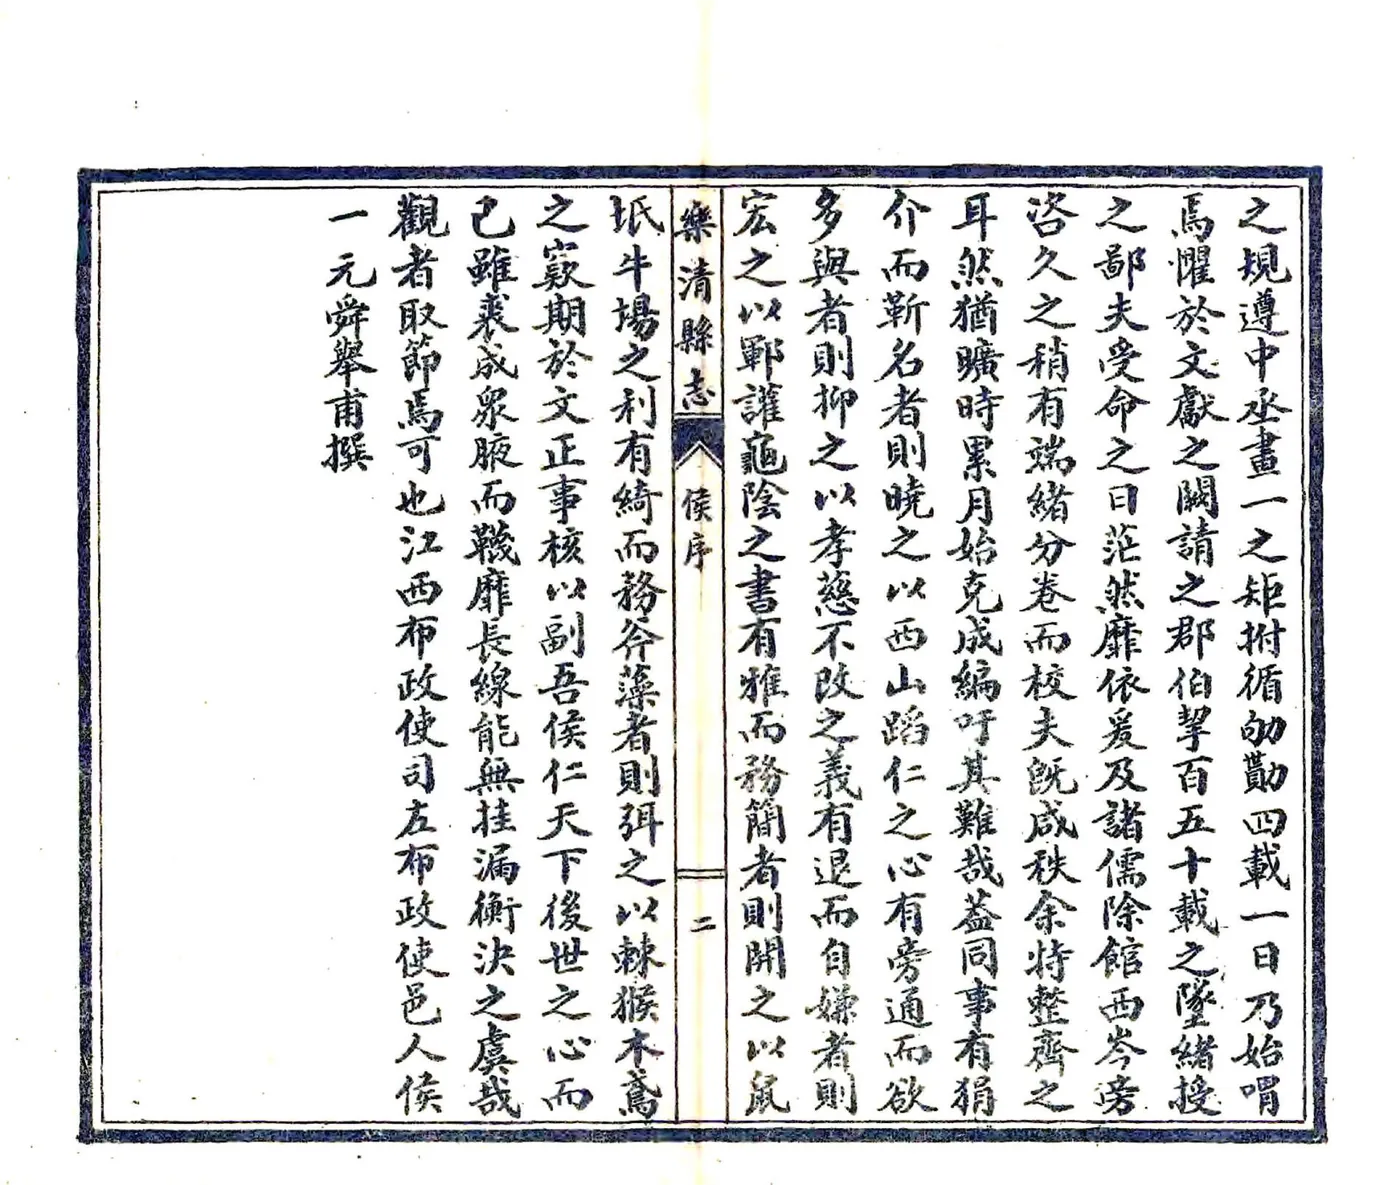 之規遵中丞畫一之矩拊循劬勩四載一日乃始喟
焉懼於文獻之闕請之郡伯挈百五十載之墜緒授
之鄙夫受命之日茫然靡依爰及諸儒除館西岑旁
咨久之稍有端緒分卷而校夫旣咸秩余特整齊之
耳然猶曠時累月始克成編吁其難哉葢同事有狷
介而靳名者則曉之以西山蹈仁之心有旁通而欲
多與者則抑之以孝慈不改之義有退而自嫌者則
宏之以鄆讙龜陰之書有雅而務簡者則開之以鼠
樂清縣志
侯序
二
坻牛場之利有綺而務斧藻者則弭之以棘猴木鳶
之窾期於文正事核以副吾侯仁天下後世之心而
已雖裘成眾腋而韈靡長線能無挂漏衡決之虞哉
觀者取節焉可也江西布政使司左布政使邑人侯
一元舜舉甫撰